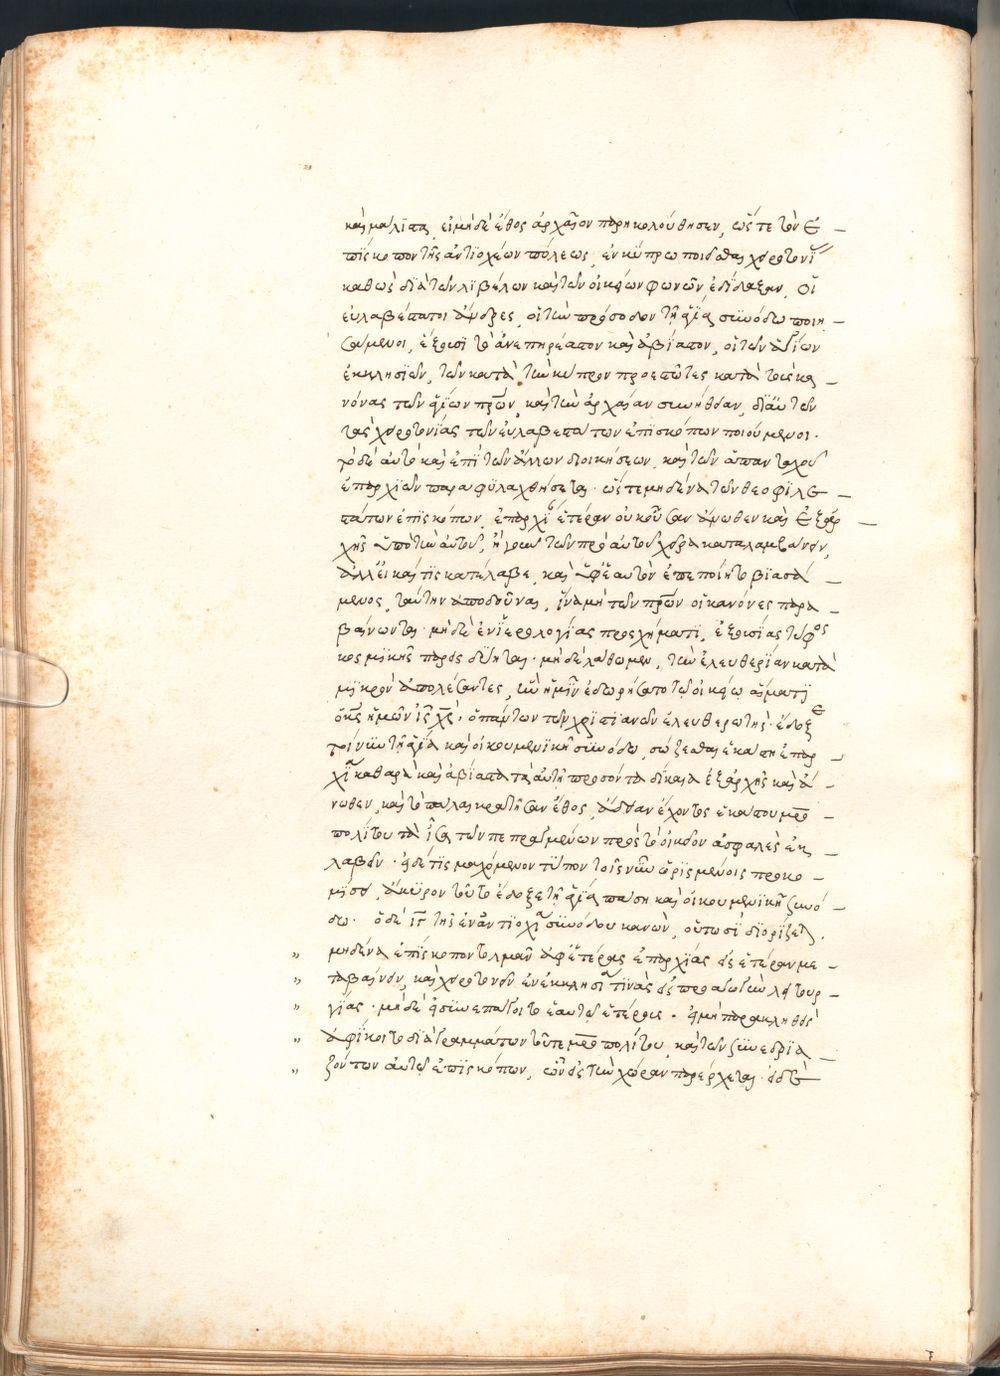 καὶ μάλιστα, εἰ μηδὲ ἔθος ἀρχαῖον παρηκολούθησεν, ὥστε τὸν ἐ
πίσκοπον τῆς ἀντιοχέων πόλεως, ἐν κύπρω ποιεῖσθαι χειροτονί
καθὼς διὰ τῶν λιβέλων καὶ τῶν οἰκείων φωνῶν, ἐδίδαξαν, οἱ
εὐλαβέστατοι ἄνδρες, οἱ τὴν πρόσοδον τῇ ἁγία συνόδω ποιη
σάμενοι, ἕξουσι τὸ ἀνεπηρέαστον καὶ ἀβίαστον, οἱ τῶν ἁγίων
ἐκκλησιῶν, τῶν κατὰ τὴν κύπρον προεστῶτες κατὰ τοὺς κα
νόνας τῶν ἁγίων πρων, καὶ τὴν ἀρχαίαν συνήθειαν, δι' αὑτῶν
τὰς χειροτονίας τῶν εὐλαβεστάτων ἐπισκόπων ποιούμενοι.
τὸ δὲ αὐτὸ καὶ ἐπὶ τῶν ἄλλων διοικήσεων, καὶ τῶν ἁπανταχοῦ
ἐπαρχιῶν παραφυλαχθήσεται. ὥστε μηδένα τῶν θεοφιλε
στάτων ἐπισκόπων, ἐπαρχί ἑτέραν οὐκ οὖσαν ἄνωθεν καὶ ἐξ ἀρ
χῆς ὑπὸ τὴν αὐτοῦ, ἤγουν τῶν πρὸ αὐτοῦ χεῖρα καταλαμβάνειν,
ἀλλ' εἰ καί τις κατέλαβε, καὶ ὑφ' ἑαυτὸν ἐπεποίητο βιασά
μενος, ταύτην ἀποδοῦναι, ἵνα μὴ τῶν πρων οἱ κανόνες παρα
βαίνωνται. μηδὲ ἐν ἱερολογίας προσχήματι, ἐξουσίας τῦφος
κοσμικῆς παρεισδύηται. μηδὲ λάθωμεν, τὴν ἐλευθερίαν κατὰ
μικρὸν ἀπολέσαντες, ἣν ἡμῖν ἐδωρήσατο τῶ οἰκείω αἵματι
ὁ κς ἡμῶν ις χς. ὁ πάντων τῶν χριστιανῶν ἐλευθερωτής. ἔδοξε
τοίνυν τῇ ἁγία καὶ οἰκουμενικῇ συνόδω, σώζεσθαι ἑκάστη ἐπαρ
χία καθαρὰ καὶ ἀβίαστα τὰ αὐτῇ προσόντα δίκαια ἐξ ἀρχῆς καὶ ἄ
νωθεν, κατὰ τὸ πάλαι κρατῆσαν ἔθος, ἄδειαν ἔχοντος ἑκάστου μρο
πολίτου τὰ ἴσα τῶν πεπραγμένων πρὸς τὸ οἰκεῖον ἀσφαλὲς ἐκ
λαβεῖν. εἰ δέ τις μαχόμενον τύπον τοῖς νῦν ὡρισμένοις προκο
μίσοι, ἄκυρον τοῦτο ἔδοξε τῇ ἁγία πάση καὶ οἰκουμενικῇ συνό
δω. ὁ δὲ ιγ τῆς ἐν ἀντιοχία συνόδου κανὼν, οὑτωσὶ διορίζεται.
„ μηδένα ἐπίσκοπον τολμᾶν ἀφ' ἑτέρας ἐπαρχίας εἰς ἑτέραν με
„ ταβαίνειν, καὶ χειροτονεῖν ἐν ἐκκλησία τινὰς εἰς προαγωγὴν λειτουρ
„ γίας. μηδὲ εἰ συνεπάγοιτο ἑαυτῶ ἑτέρους. εἰ μὴ παρακληθεὶς
„ ἀφίκοιτο διὰ γραμμάτων τοῦ τε μροπολίτου, καὶ τῶν συνεδρια
„ ζόντων αὐτῶ ἐπισκόπων, ὧν εἰς τὴν χώραν παρέρχεται. εἰ δὲ